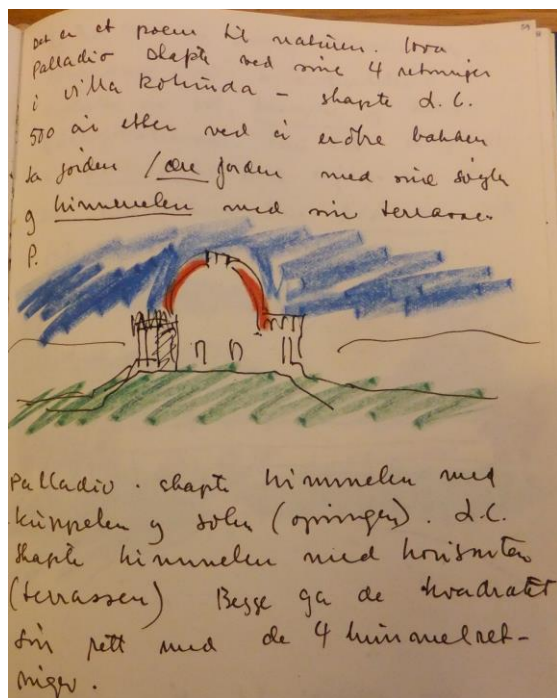 Det er et poem til naturen. hva
Palladio skapte ved sine 4 retninger
i villa Rotunda – skapte L.C.
500 år etter ved å erobre bakken
la jorden / ære jorden med sine søyler
og himmelen med sin terrasse.
P.
Palladio . skapte himmelen med
kuppelen og solen (åpningen). L.C.
skapte himmelen med horisonten
(terrassen) Begge ga de kvadratet
sin rett med de 4 himmelret-
ninger.